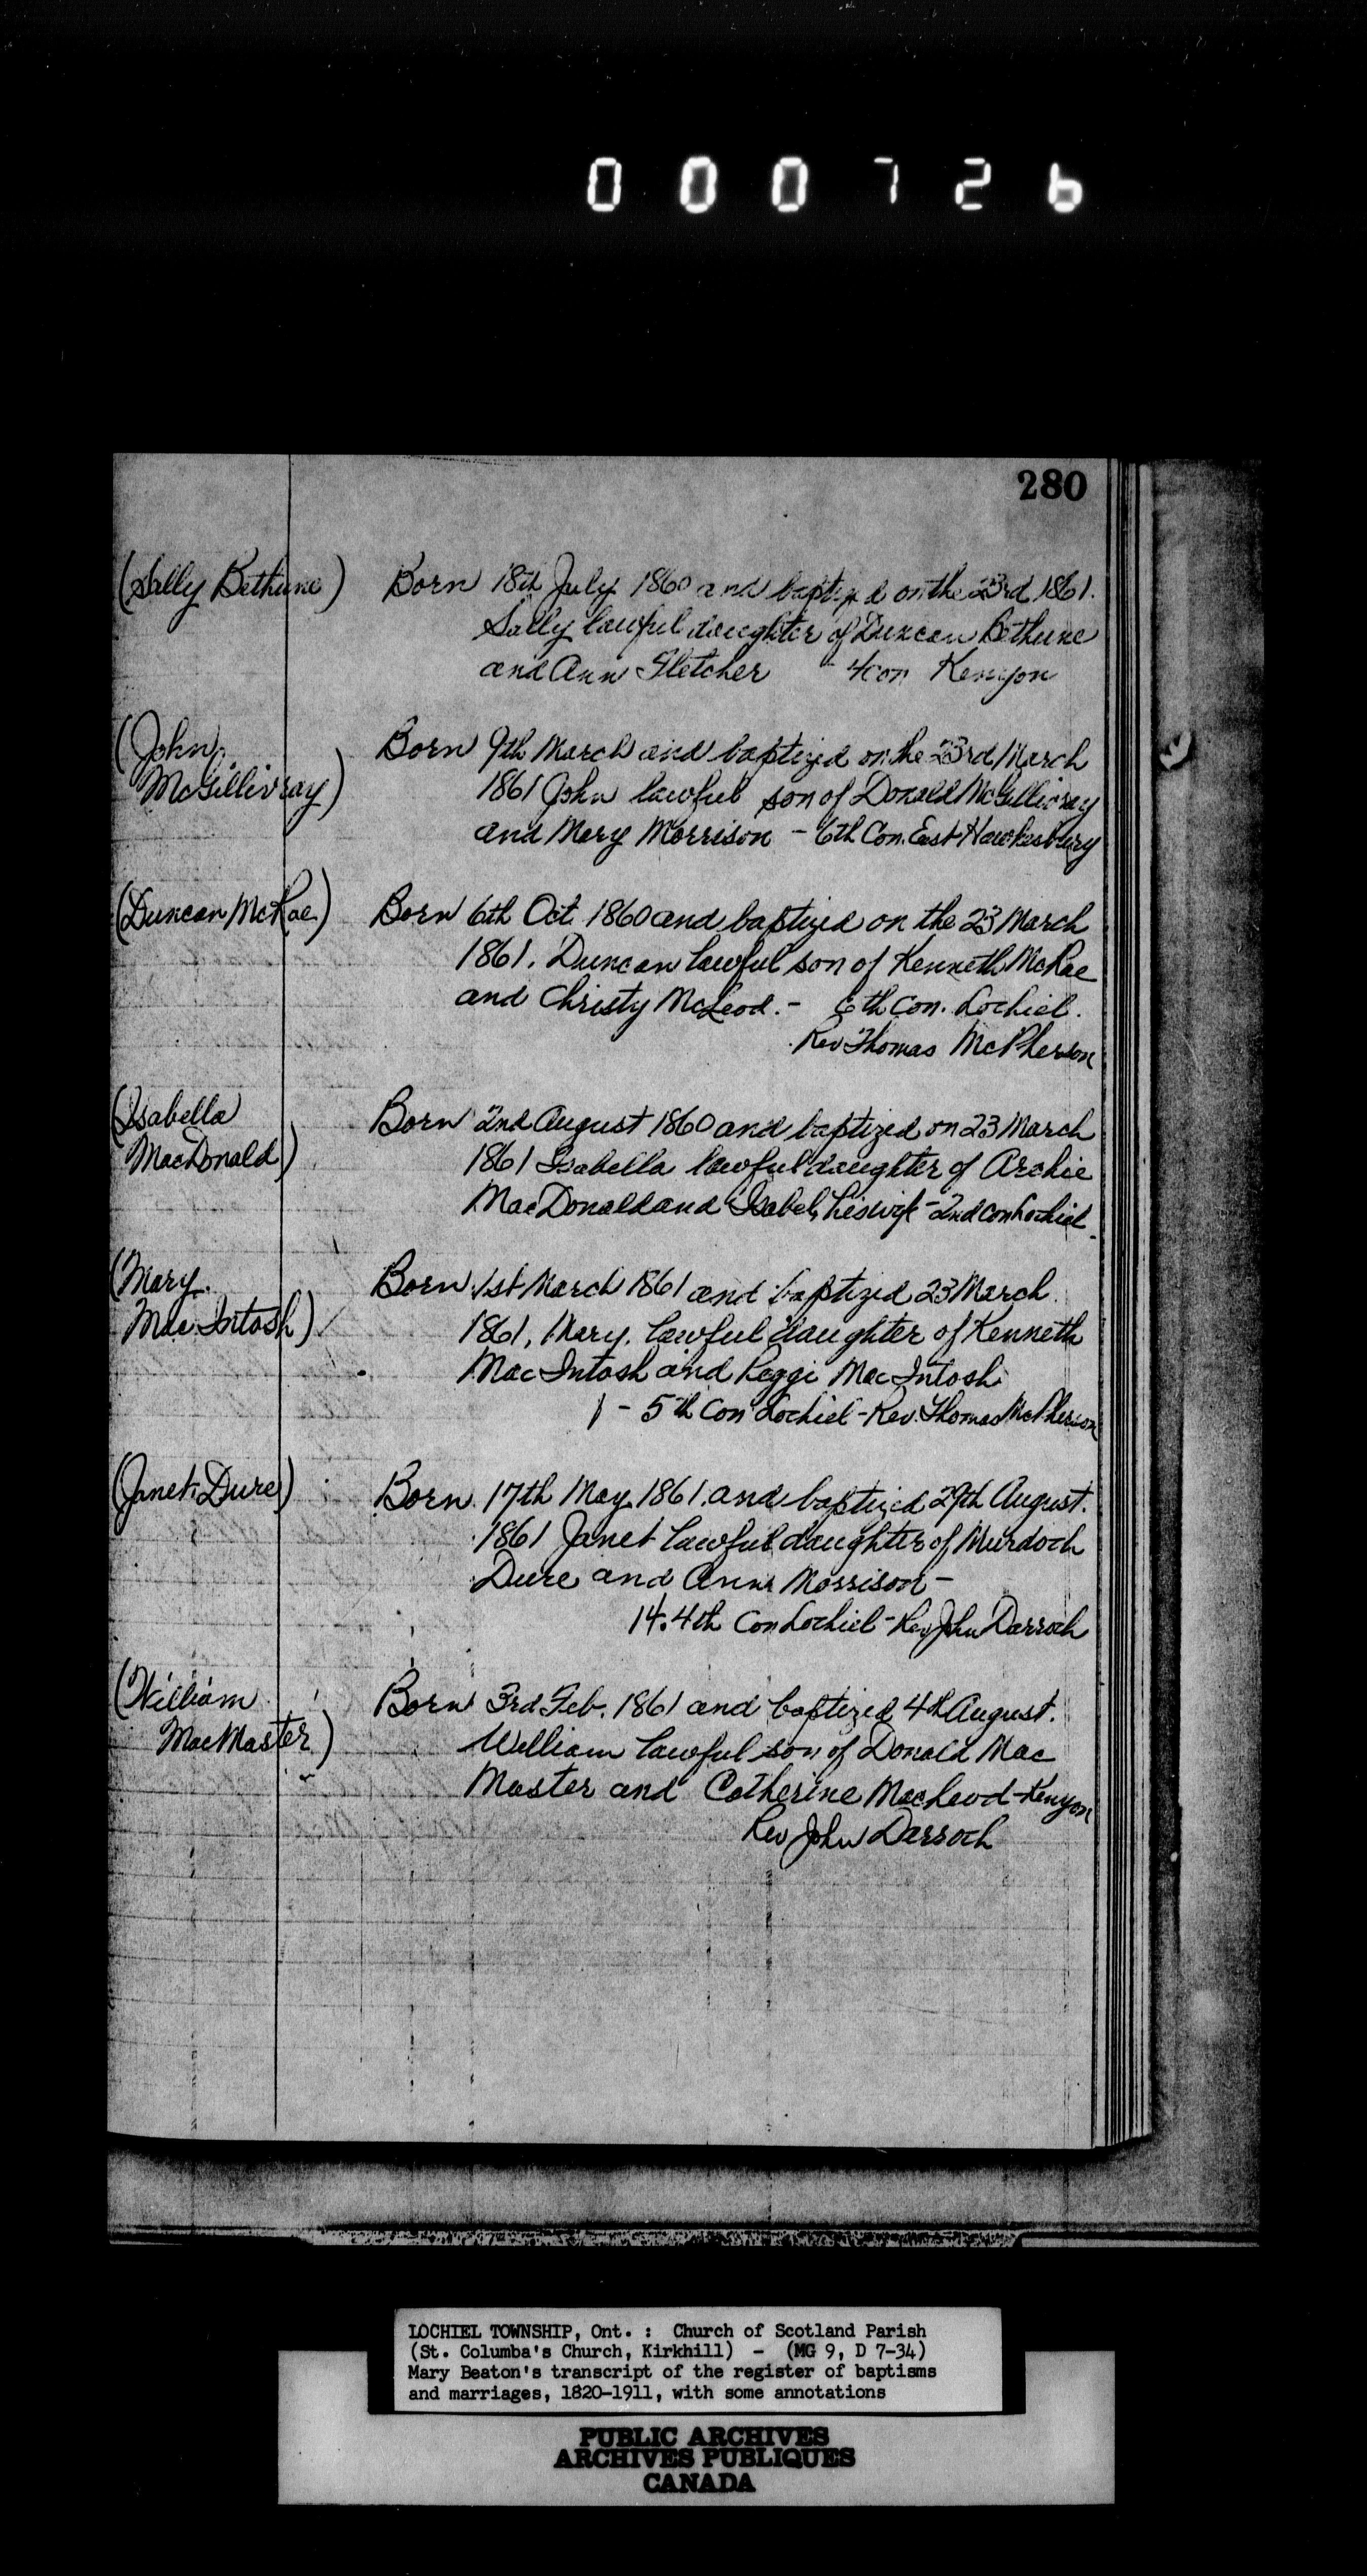 000726
280
(Sally Bethune) Born 18th July 1860 and baptized on the 23rd 1861.
Sally lawful daughter of Duncan Bethune
and Ann Fletcher - 4 con Kenyon
(John Born 9th March and baptized on the 23rd March
McGillivray) 1861 John lawful son of Donald McGillivray
and Mary Morrison - 6th Con. East Hawkesbury
(Duncan McRae) Born 6th Oct. 1860 and baptized on the 23 March
1861. Duncan lawful son of Kenneth McRae
and Christy McLeod. - 6th Con. Lochiel.
Rev Thomas McPherson
(Isabella Born 2nd August 1860 and baptized on 23 March
MacDonald) 1861 Isabella lawful daughter of Archie
MacDonald and Isabel, his wife - 2nd con Lochiel
(Mary Born 1st March 1861 and baptized 23 March
MacIntosh) 1861, Mary, lawful daughter of Kenneth
MacIntosh and Peggi MacIntosh
1 - 5th Con Lochiel - Rev. Thomas McPherson
(Janet Dure) Born 17th May 1861 and baptized 29th August.
1861 Janet lawful daughter of Murdoch
Dure and Ann Morrison -
14. 4th Con Lochiel - Rev John Darroch
(William Born 3rd Feb. 1861 and baptized 4th August.
MacMaster) William lawful son of Donald Mac
Master and Catherine MacLeod - Kenyon
Rev John Darroch
LOCHIEL TOWNSHIP, Ont. : Church of Scotland Parish
(St. Columba's Church, Kirkhill) - (MG 9, D 7-34)
Mary Beaton's transcript of the register of baptisms
and marriages, 1820-1911, with some annotations
PUBLIC ARCHIVES
ARCHIVES PUBLIQUES
CANADA